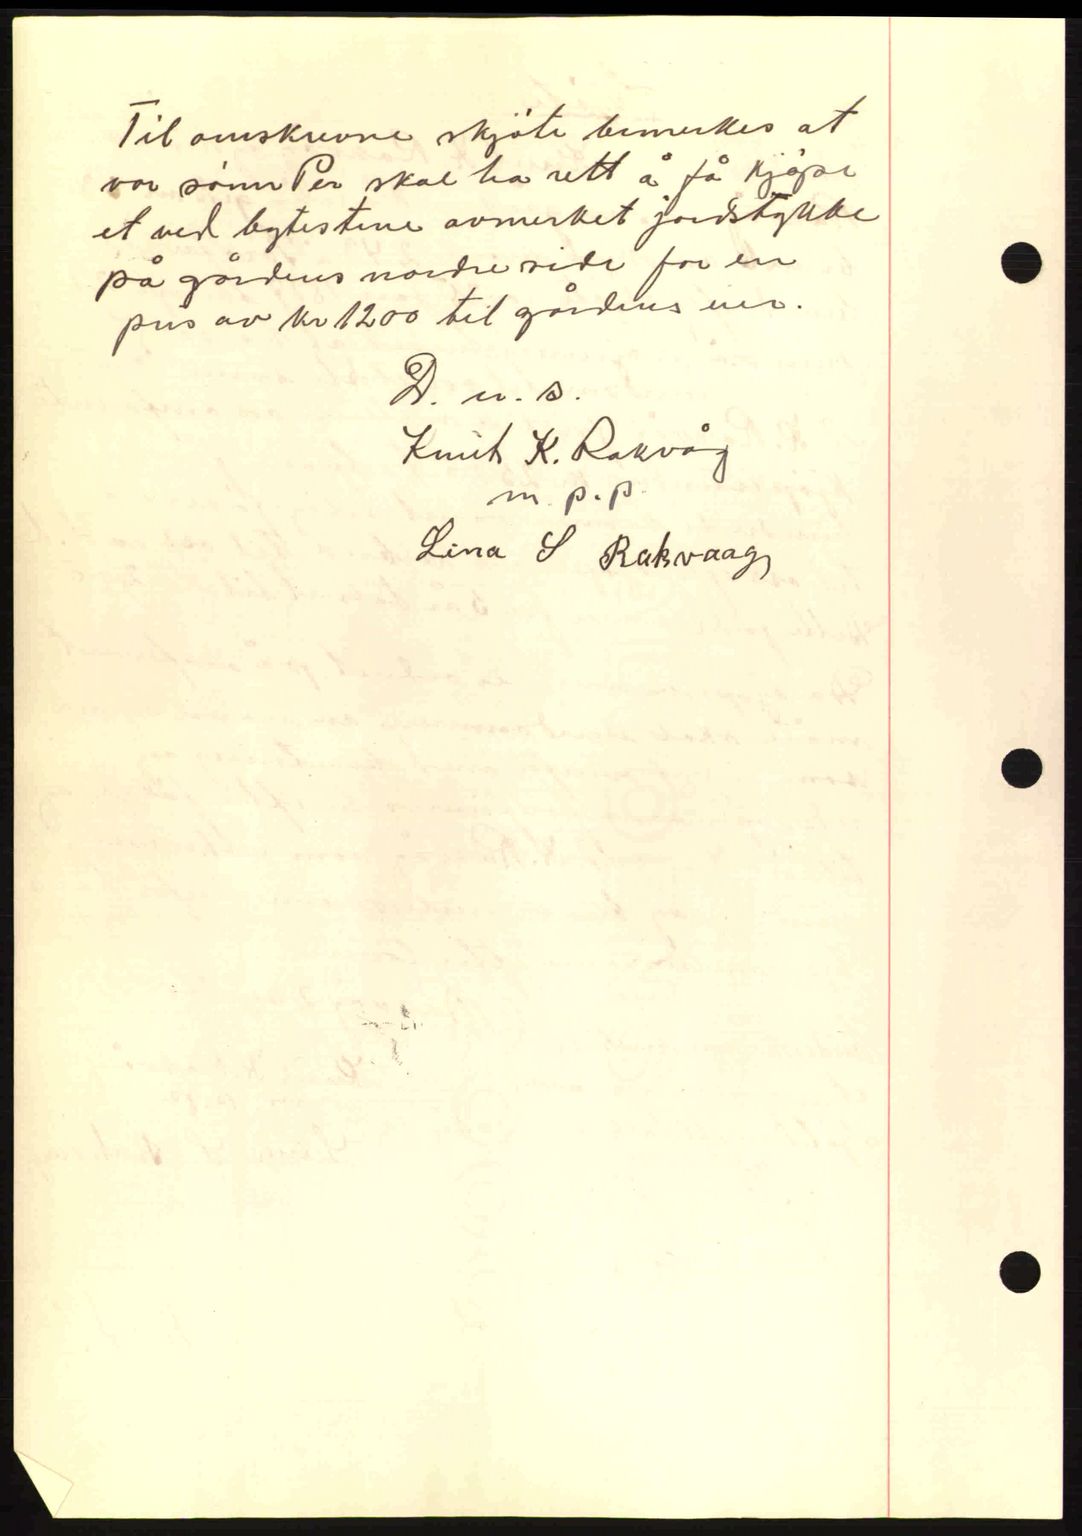 Til omskrevne skjøte bemerkes at
vor sønn Per skal ha rett å få kjøpe
et ved bytestene avmerket jordstykke
på gårdens nordre side for en
pris av kr 1200 til gårdens eier.
D. u. s.
Knut K. Rakvåg
m. p. p.
Lina S Rakvaag